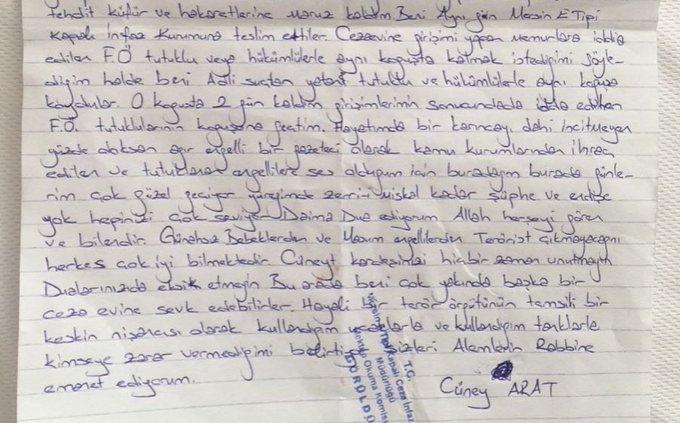 tehdit küfür ve hakaretlerine maruz kaldım Beni Aynı gün Mersin E Tipi
kapalı infaz kurumuna teslim ettiler. Cezaevine girişimi yapan memurlara iddia
edilen F.Ö tutuklu veya hükümlülerle aynı koğuşta kalmak istediğimi söyle-
diğim halde beni Adli suçtan yatan tutuklu ve hükümlülerle aynı koğuşa
koydular. O koğuşta 2 gün kaldım girişimlerimin sonucunda iddia edilen
F.Ö. tutuklularının koğuşuna geçtim. Hayatımda bir karıncayı dahi incitmeyen
yüzde doksan ağır engelli bir gazeteci olarak kamu kurumlarından ihraç
edilen ve tutuklanan engellilere ses olduğum için buradayım burada günle-
rim çok güzel geçiyor yüreğimde zerre-i miskal kadar şüphe ve endişe
yok hepinizi çok seviyor Daima Dua ediyorum Allah herşeyi gören
ve bilendir. Günahsız Bebeklerden ve Masum engellilerden Terörist çıkmayacağını
herkes çok iyi bilmektedir. Cüneyt kardeşinizi hiç bir zaman unutmayın
Dualarınızda eksik etmeyin Bu arada beni çok yakında başka bir
ceza evine sevk edebilirler. Hayali bir terör örgütünün temsili bir
keskin nişancısı olarak kullandığım ve kullandığım tanklarla
kimseye zarar vermediğimi sizleri Alemlerin Rabbine
emanet ediyorum.
Cüney ARAT
T.C.
Mersin E Tipi Kapalı Ceza İnfaz
Müdürlüğü
Mektup Okuma Komis
GÖRÜLDÜ